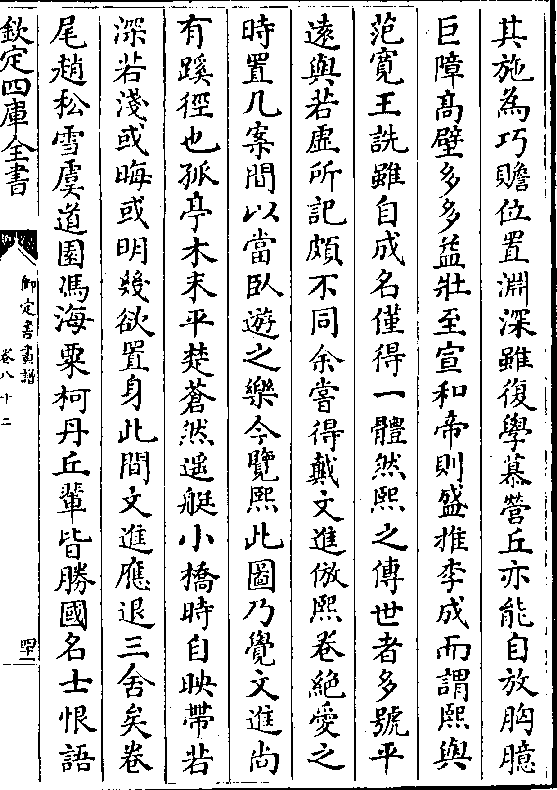 其施為巧贍位置淵深雖復學慕營丘亦能自放胸臆
巨障高壁多多益壯至宣和帝則盛推李成而謂熙與
范寛王詵雖自成名僅得一體然熙之傳世者多號平
遠與若虚所記頗不同余嘗得戴文進倣熙卷絶愛之
時置几案間以當臥遊之樂今覽熙此圖乃覺文進尚
有蹊徑也孤亭木末平楚蒼然遥艇小橋時自映帶若
深若淺或晦或明幾欲置身此間文進應退三舍矣卷
尾趙松雪虞道園馮海粟柯丹丘輩皆勝國名士恨語
欽定四庫全書
御定書畫譜
卷八十二
四十一